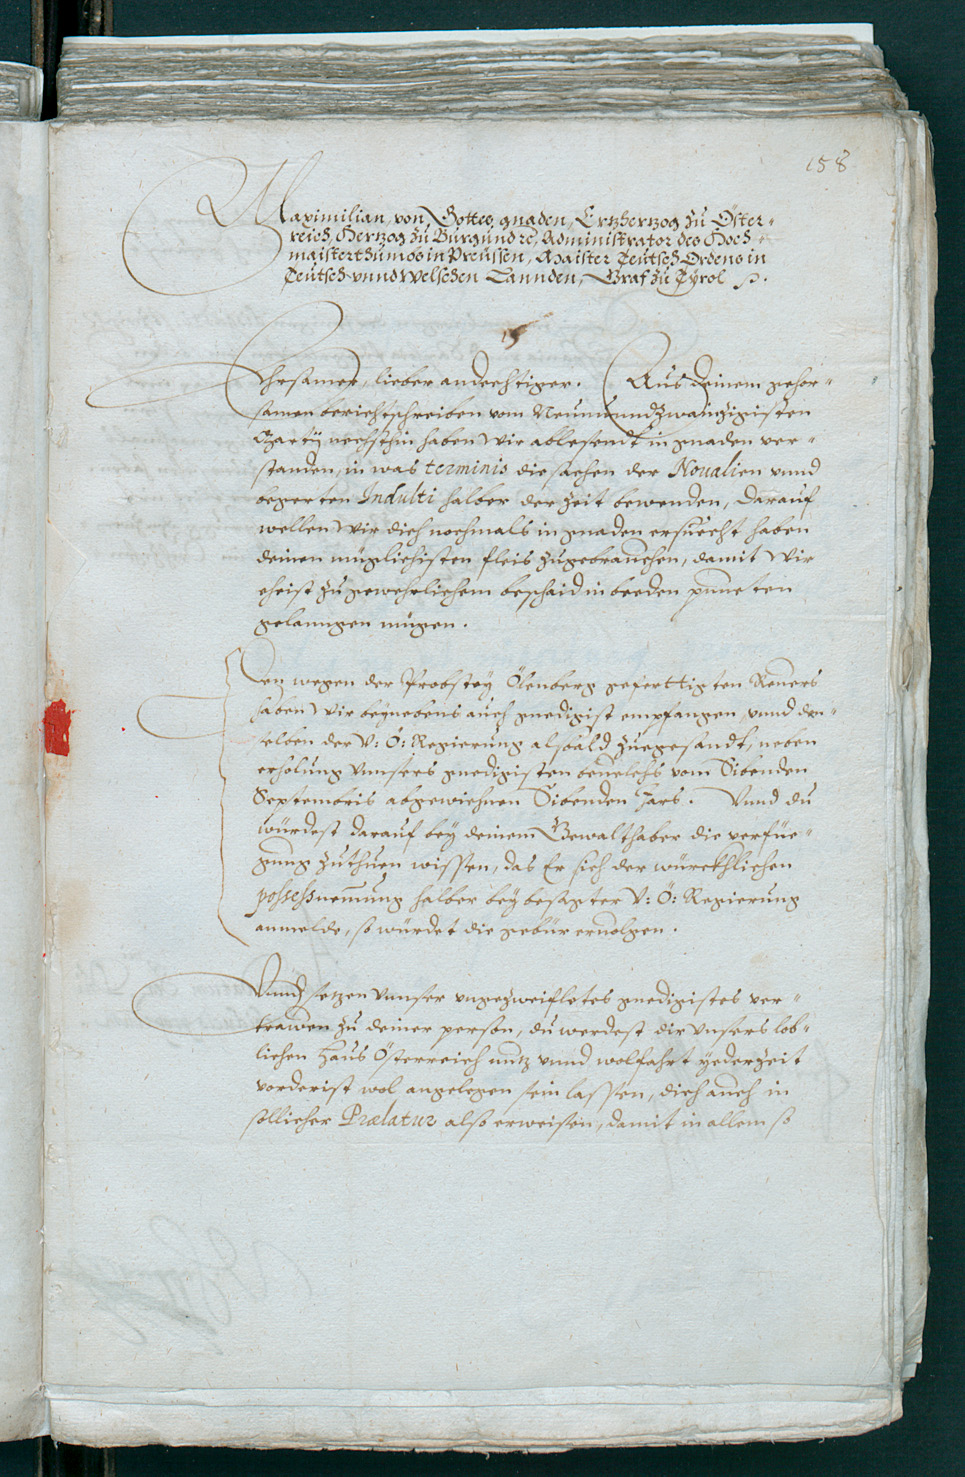 158
Maximilian von Gottes gnaden, Ertzhertzog zu Öster-
reich, Hertzog zu Burgundt, Administrator des Hoch-
maisterthumbs in Preüssen, Maister Teütsch Ordens in
Teütsch unnd Welschen Lannden, Graf zu Tyrol
Ehrsamer, lieber andechtiger. Aus deinem gehor-
samen berichtschreiben vom Neunundzwainzigisten
Martij nechsthin haben Wir ablesendt in gnaden ver-
standen, in was terminis die sachen der Noualien vnnd
begerten Indulti halber der Zeit bewenden, Darauf
wellen Wir dich nochmals in gnaden ersuecht haben
deinen müglichisten fleis zugebrauchen, damit Wir
eheist zu gewehrlichem beschaid in beeden puncten
gelanngen mügen.
Den wegen der Probstey Ölenberg gefertigten Reuers
haben Wir beynebens auch gnedigist empfangen, vnnd den-
selben der V: Ö: Regierung alsbald zuegesandt, neben
erholung Vnnsers gnedigisten beuelchs vom Sibenden
Septembris abgewichnen Sibenden Jars. Vnnd du
würdest darauf bey deinem Gewalthaber die verfüe-
gung zuthuen wissen, das Er sich der würckhlichen
possessnemung halber bey besagter V: Ö: Regierung
anmelde, so würdet die gebür eruolgen.
Vnnd setzen Vnnser vngezweifletes gnedigistes ver-
trawen zu deiner person, du werdest dir Vnsers lob-
lichen Haus Österreich nutz vnnd wolfahrt yederzeit
vorderist wol angelegen sein lassen, dich auch in
sollicher Prælatur also erweisen, damit in allem so